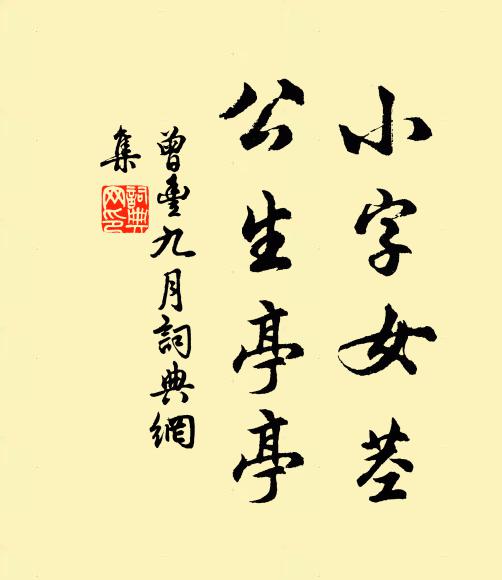 小字女茎
公生亭亭
曾豊九月詞典網
集
詞典網印